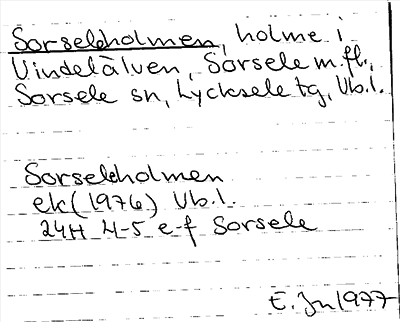 Sorseleholmen, holme i
Vindelälven, Sorsele m.fl.,
Sorsele sn, Lycksele tg, Vb.l.
Sorseleholmen
ek (1976) Vb.l.
24H 4-5 e-f Sorsele
E. Jn 1977